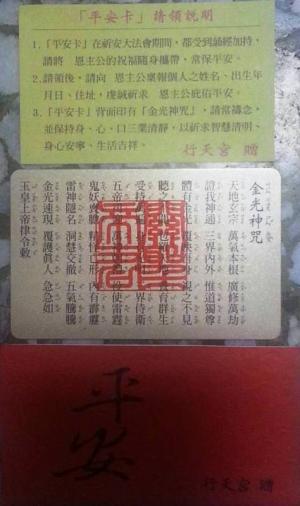 「平安卡」請領說明
1.「平安卡」在祈安大法會期間，都受到誦經加持，
請將 恩主公的祝福隨身攜帶，常保平安。
2.請領後，請向 恩主公稟報個人之姓名、出生年
月日、住址，虔誠祈求 恩主公庇佑平安。
3.「平安卡」背面印有「金光神咒」，請常禱念，
並保持身、心、口三業清靜，以祈求智慧清明、
身心安寧、生活吉祥。
行天宮 贈
金光神咒
天地玄宗 萬氣本根 廣修萬劫
證我神通 三界內外 惟道獨尊
體有金光 覆映吾身 視之不見
聽之 育群生
受持 界侍衛
五帝 役使雷霆
鬼妖喪膽 精怪亡形 內有霹靂
雷神隱名 洞慧交徹 五氣騰騰
金光速現 覆護真人 急急如
玉皇上帝律令敕
平安
行天宮 贈